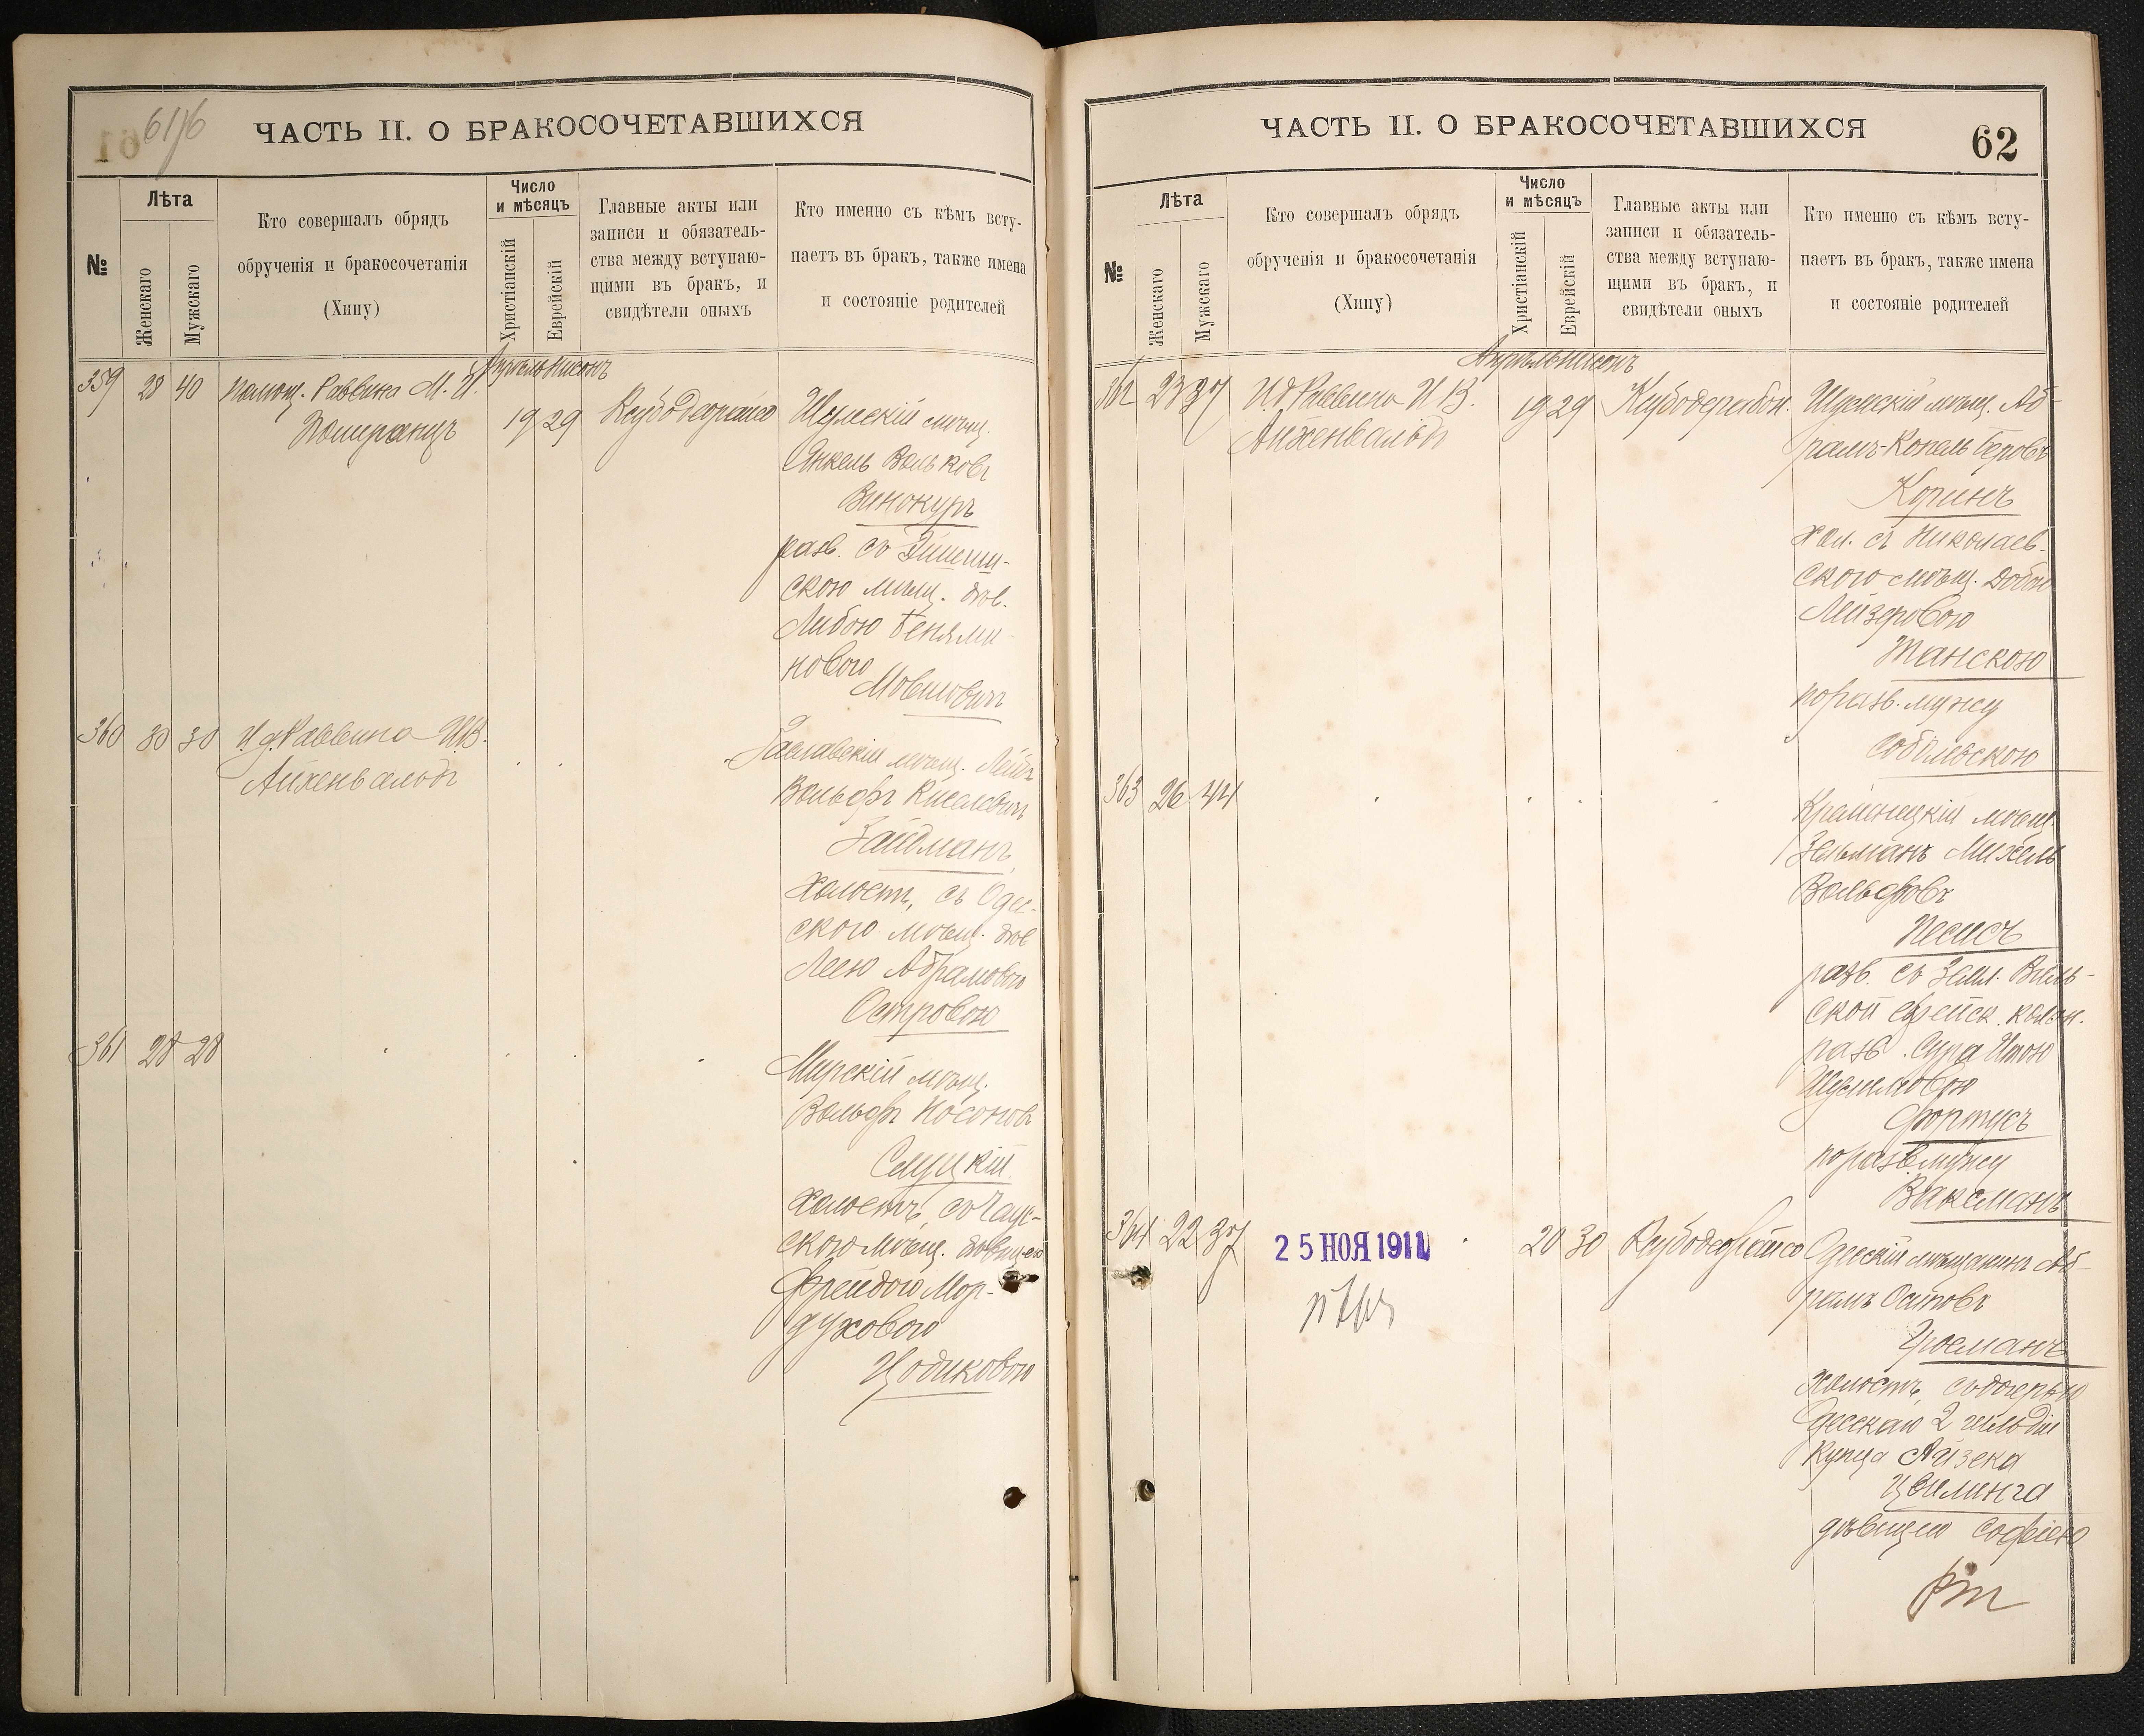 61
ЧАСТЬ II. О БРАКОСОЧЕТАВШИХСЯ
№
Лѣта
Женскаго
Мужскаго
Кто совершалъ обрядъ
обрученія и бракосочетанія
(Хипу)
Число
и мѣсяцъ
Христіанскій
Еврейскій
Главные акты или
записи и обязатель-
ства между вступаю-
щими въ бракъ, и
свидѣтели оныхъ
Кто именно съ кѣмъ всту-
паетъ въ бракъ, также имена
и состояніе родителей
Апрель Нисонъ
359 28 40 Помощ. Раввина М. И.
Померанцъ
19 29
Шумскій мѣщ.
Янкель Вольковъ
Винокуръ
разв. съ
скою мѣщ. дѣв.
Либою Беньями-
новою
Мовшовичъ
360 30 30 И. д. Раввина И.В.
Айхенвальдъ
Заславскій мѣщ. Лейб
Вольфъ Киселевичъ
Зайдманъ
Холостъ, съ Одес-
скою мѣщ. дѣв
Леею Абрамовою
Островою
361 28 28
Мирскій мѣщ.
Вольфъ Носоновъ
Слуцкій
Холостъ, съ Чаус-
скою мѣщ. дѣвицею
Фрейдою Мор-
духовою
Цодиковою
ЧАСТЬ II. О БРАКОСОЧЕТАВШИХСЯ
62
№
Лѣта
Женскаго
Мужскаго
Кто совершалъ обрядъ
обрученія и бракосочетанія
(Хипу)
Число
и мѣсяцъ
Христіанскій
Еврейскій
Главные акты или
записи и обязатель-
ства между вступаю-
щими въ бракъ, и
свидѣтели оныхъ
Кто именно съ кѣмъ всту-
паетъ въ бракъ, также имена
и состояніе родителей
Апрѣль Нисонъ
362 27 37 И. д. Раввина И В.
Айхенвальдъ
19 29
Шумскій мѣщ. Аб-
рамъ-Копель Беровъ
Коринъ
хол. съ Николаев-
скою мѣщ. Добою
Лейзеровою
Танскою
по разв. мужу
Собплевскою
363 26 44
мѣщ.
Зельманъ Михель
Вольфовъ
Песисъ
разв. съ Земл.
ской еврейск. колон.
разв. Сура Итою
Шмулевою
Фортусъ
по разв. мужу
Ваксманъ
364 22 37
25 НОЯ 1911
20 30
Одесскій мѣщанинъ Аб-
рамъ Осиповъ
Гросманъ
Холостъ, съ дочерью
Одесскаго 2 гильдіи
Купца Айзека
Цвилинга
дѣвицею Софіею